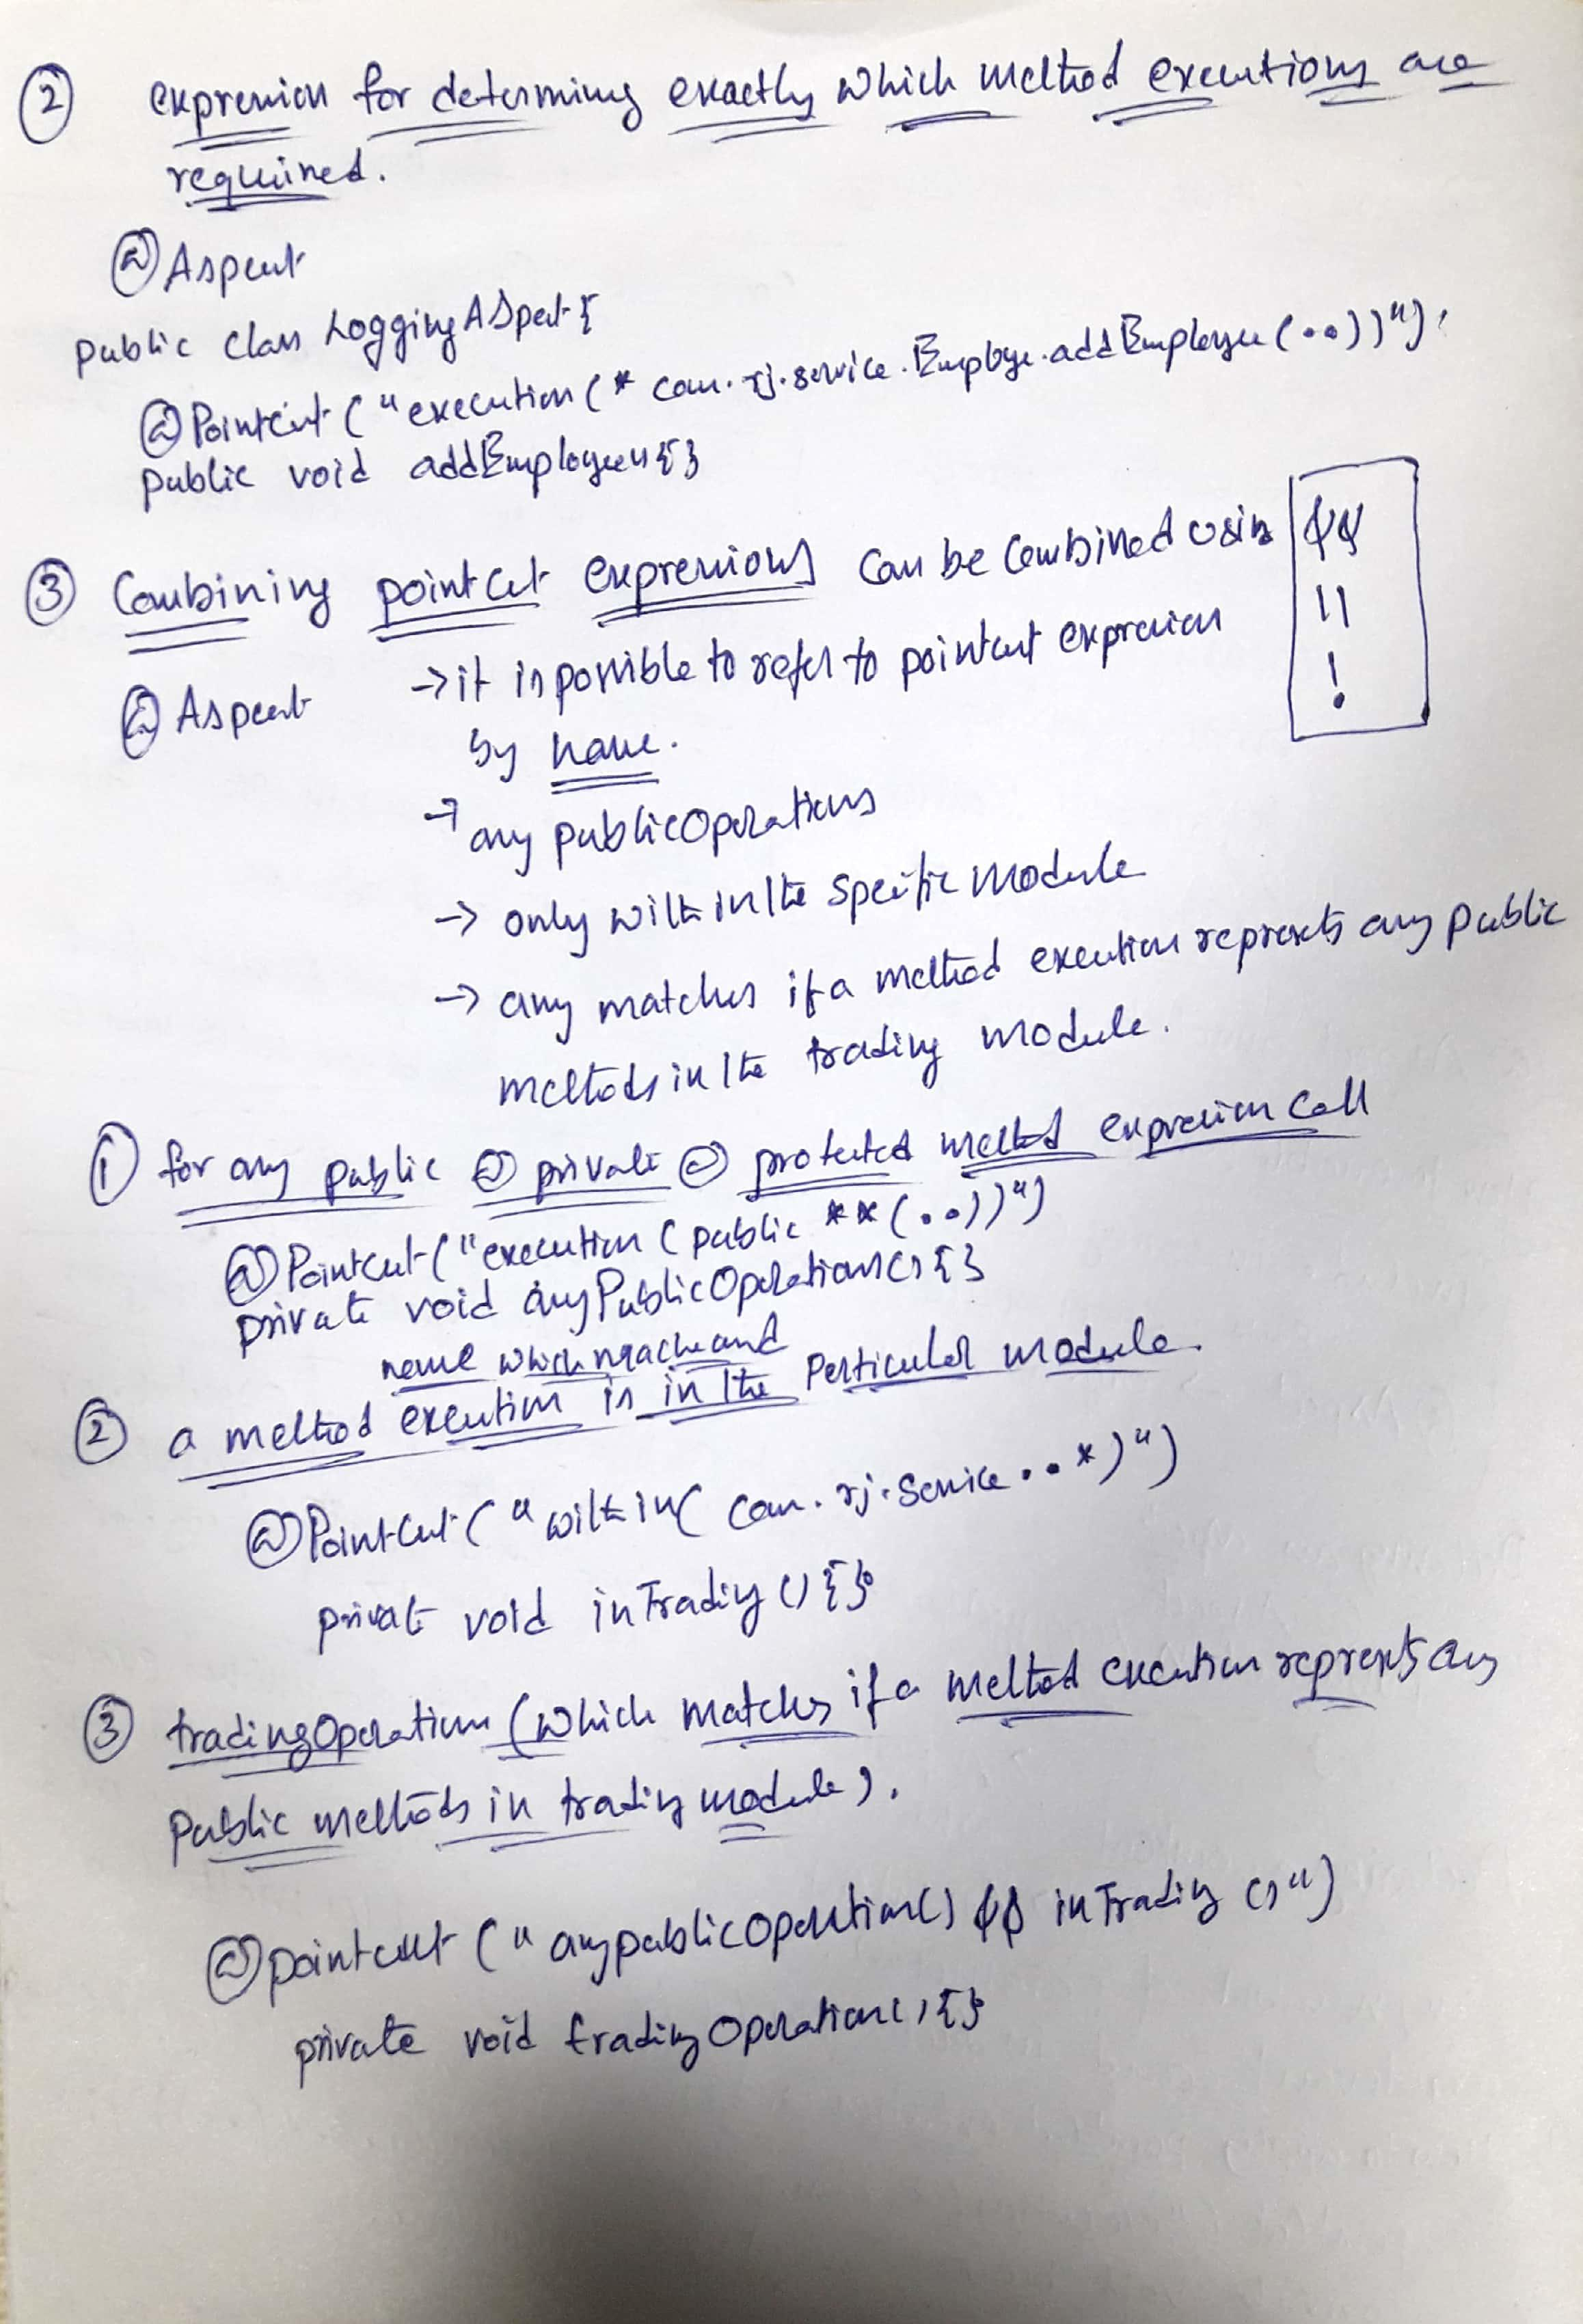 ② expression for determining exactly which method executions are
required.
@Aspect
public class LoggingASpect {
@Pointcut("execution(* com.rj.service.Employe.addEmployee(..))");
public void addEmployee() {}
③ Combining pointcut expressions can be combined using && || !
@Aspect → it is possible to refer to pointcut expression
by name.
→ any publicOperations
→ only within the specific module
→ any matches if a method execution represents any public
methods in the trading module.
① for any public @ private @ protected method expression call
@Pointcut("execution(public **(..))")
private void anyPublicOperations() {}
name which mache and
② a method execution is in the Perticular module.
@PointCut("within(com.rj.service..*)")
private void inTrading() {}
③ tradingOperation (which matches if a method execution represents any
Public methods in trading module).
@pointcut("anypublicOperation() && inTrading()")
private void tradingOperation() {}